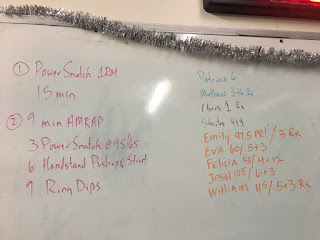 ① Power Snatch 1RM
15 min
② 9 min AMRAP
3 Power Snatch @ 95/65
6 Handstand Pushups, Strict
9 Ring Dips
Patricia 6
Matthew 3+6 Rx
Chris 1 Rx
Sheila 4+9
Emily 97.5 PR! / 3 Rx
Eva 60/ 5+3
Felicia 45/ 4+12
Josh 125/ 6+3
William 115/ 5+3 Rx